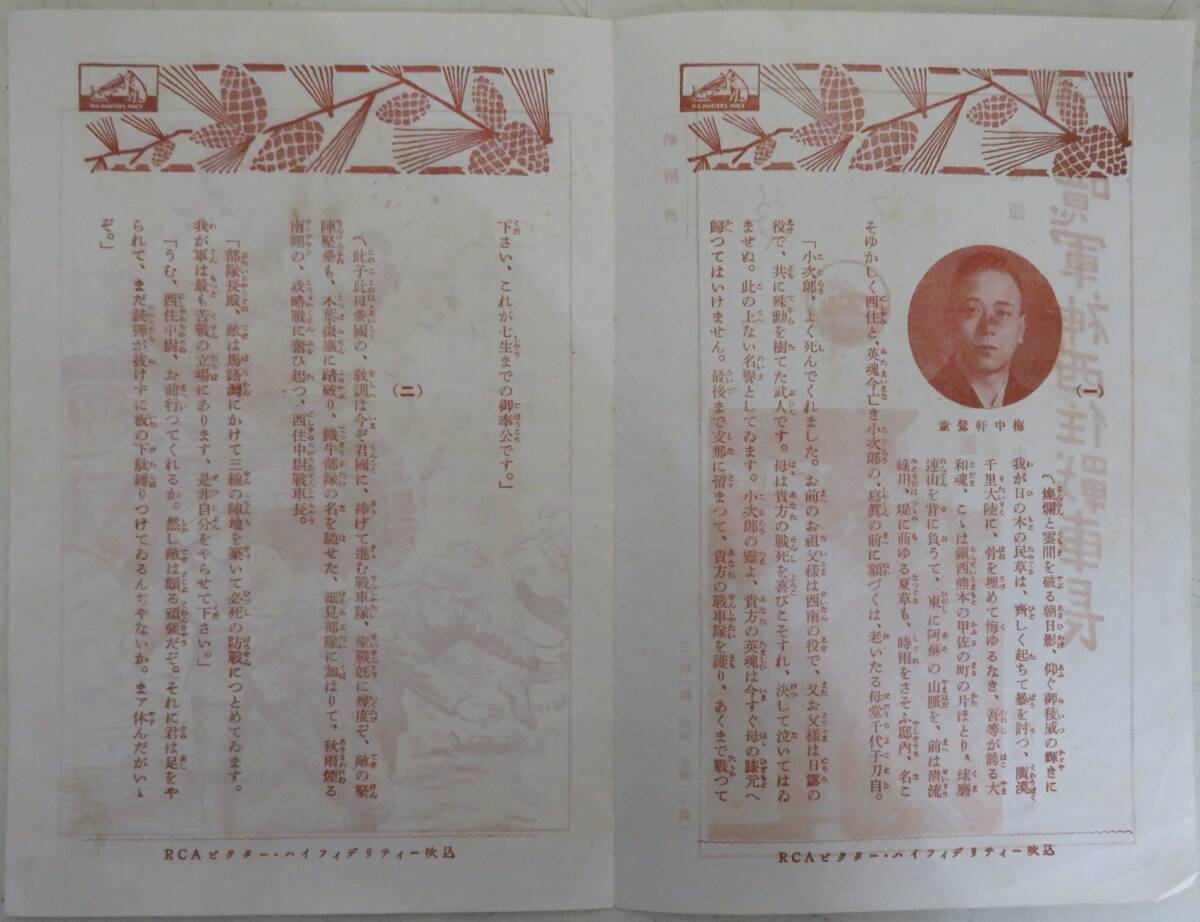 (一)
梅中軒鶯童
〽燦爛と雲間を破る朝日影、仰ぐ御稜威の輝きに
我が日の本の民草は、齊しく起ちて暴を討つ、廣漠
千里大陸に、骨を埋めて悔ゆるなき、吾等が誇る大
和魂、こゝは鎭西熊本の甲佐の町の片ほとり、球磨
連山を背に負うて、東に阿蘇の山脈を、前は淸流
綠川、堤に萠ゆる夏草も、時雨をさそふ邸内、名こ
そゆかしく西住と、英魂今亡き小次郎の、寫眞の前に額づくは、老いたる母堂千代子刀自。
「小次郎、よく死んでくれました。お前のお祖父樣は西南の役で、又お父樣は日露の
役で、共に殊勳を樹てた武人です。母は貴方の戰死を喜びこそすれ、決して泣いてはゐ
ませぬ。此の上ない名譽としてゐます。小次郎の靈よ、貴方の英魂は今すぐ母の膝元へ
歸つてはいけません。最後まで支那に留まつて、貴方の戰車隊を護り、あくまで戰つて
RCAビクター・ハイフィデリティー吹込
下さい、これが七生までの御奉公です。」
(二)
〽此子此母愛國の、敎訓は今ぞ君國に、捧げて進む戰車隊、聖戰旣に幾度ぞ、敵の堅
陣堅壘も、木葉微塵に踏破り、鐵牛部隊の名を馳せた、細見部隊に加はりて、秋雨煙る
南翔の、攻略戰に奮ひ起つ、西住中尉戰車長。
「部隊長殿、敵は馬路灣にかけて三線の陣地を築いて必死の防戰につとめてゐます。
我が軍は最も苦戰の立場にあります、是非自分をやらせて下さい。」
「うむ、西住中尉、お前行つてくれるか。然し敵は頗る頑强だぞ。それに君は足をや
られて、まだ銃彈が拔けずに板の下駄縛りつけてゐるんぢやないか。まア休んだがいゝ
ぞ。」
RCAビクター・ハイフィデリティー吹込